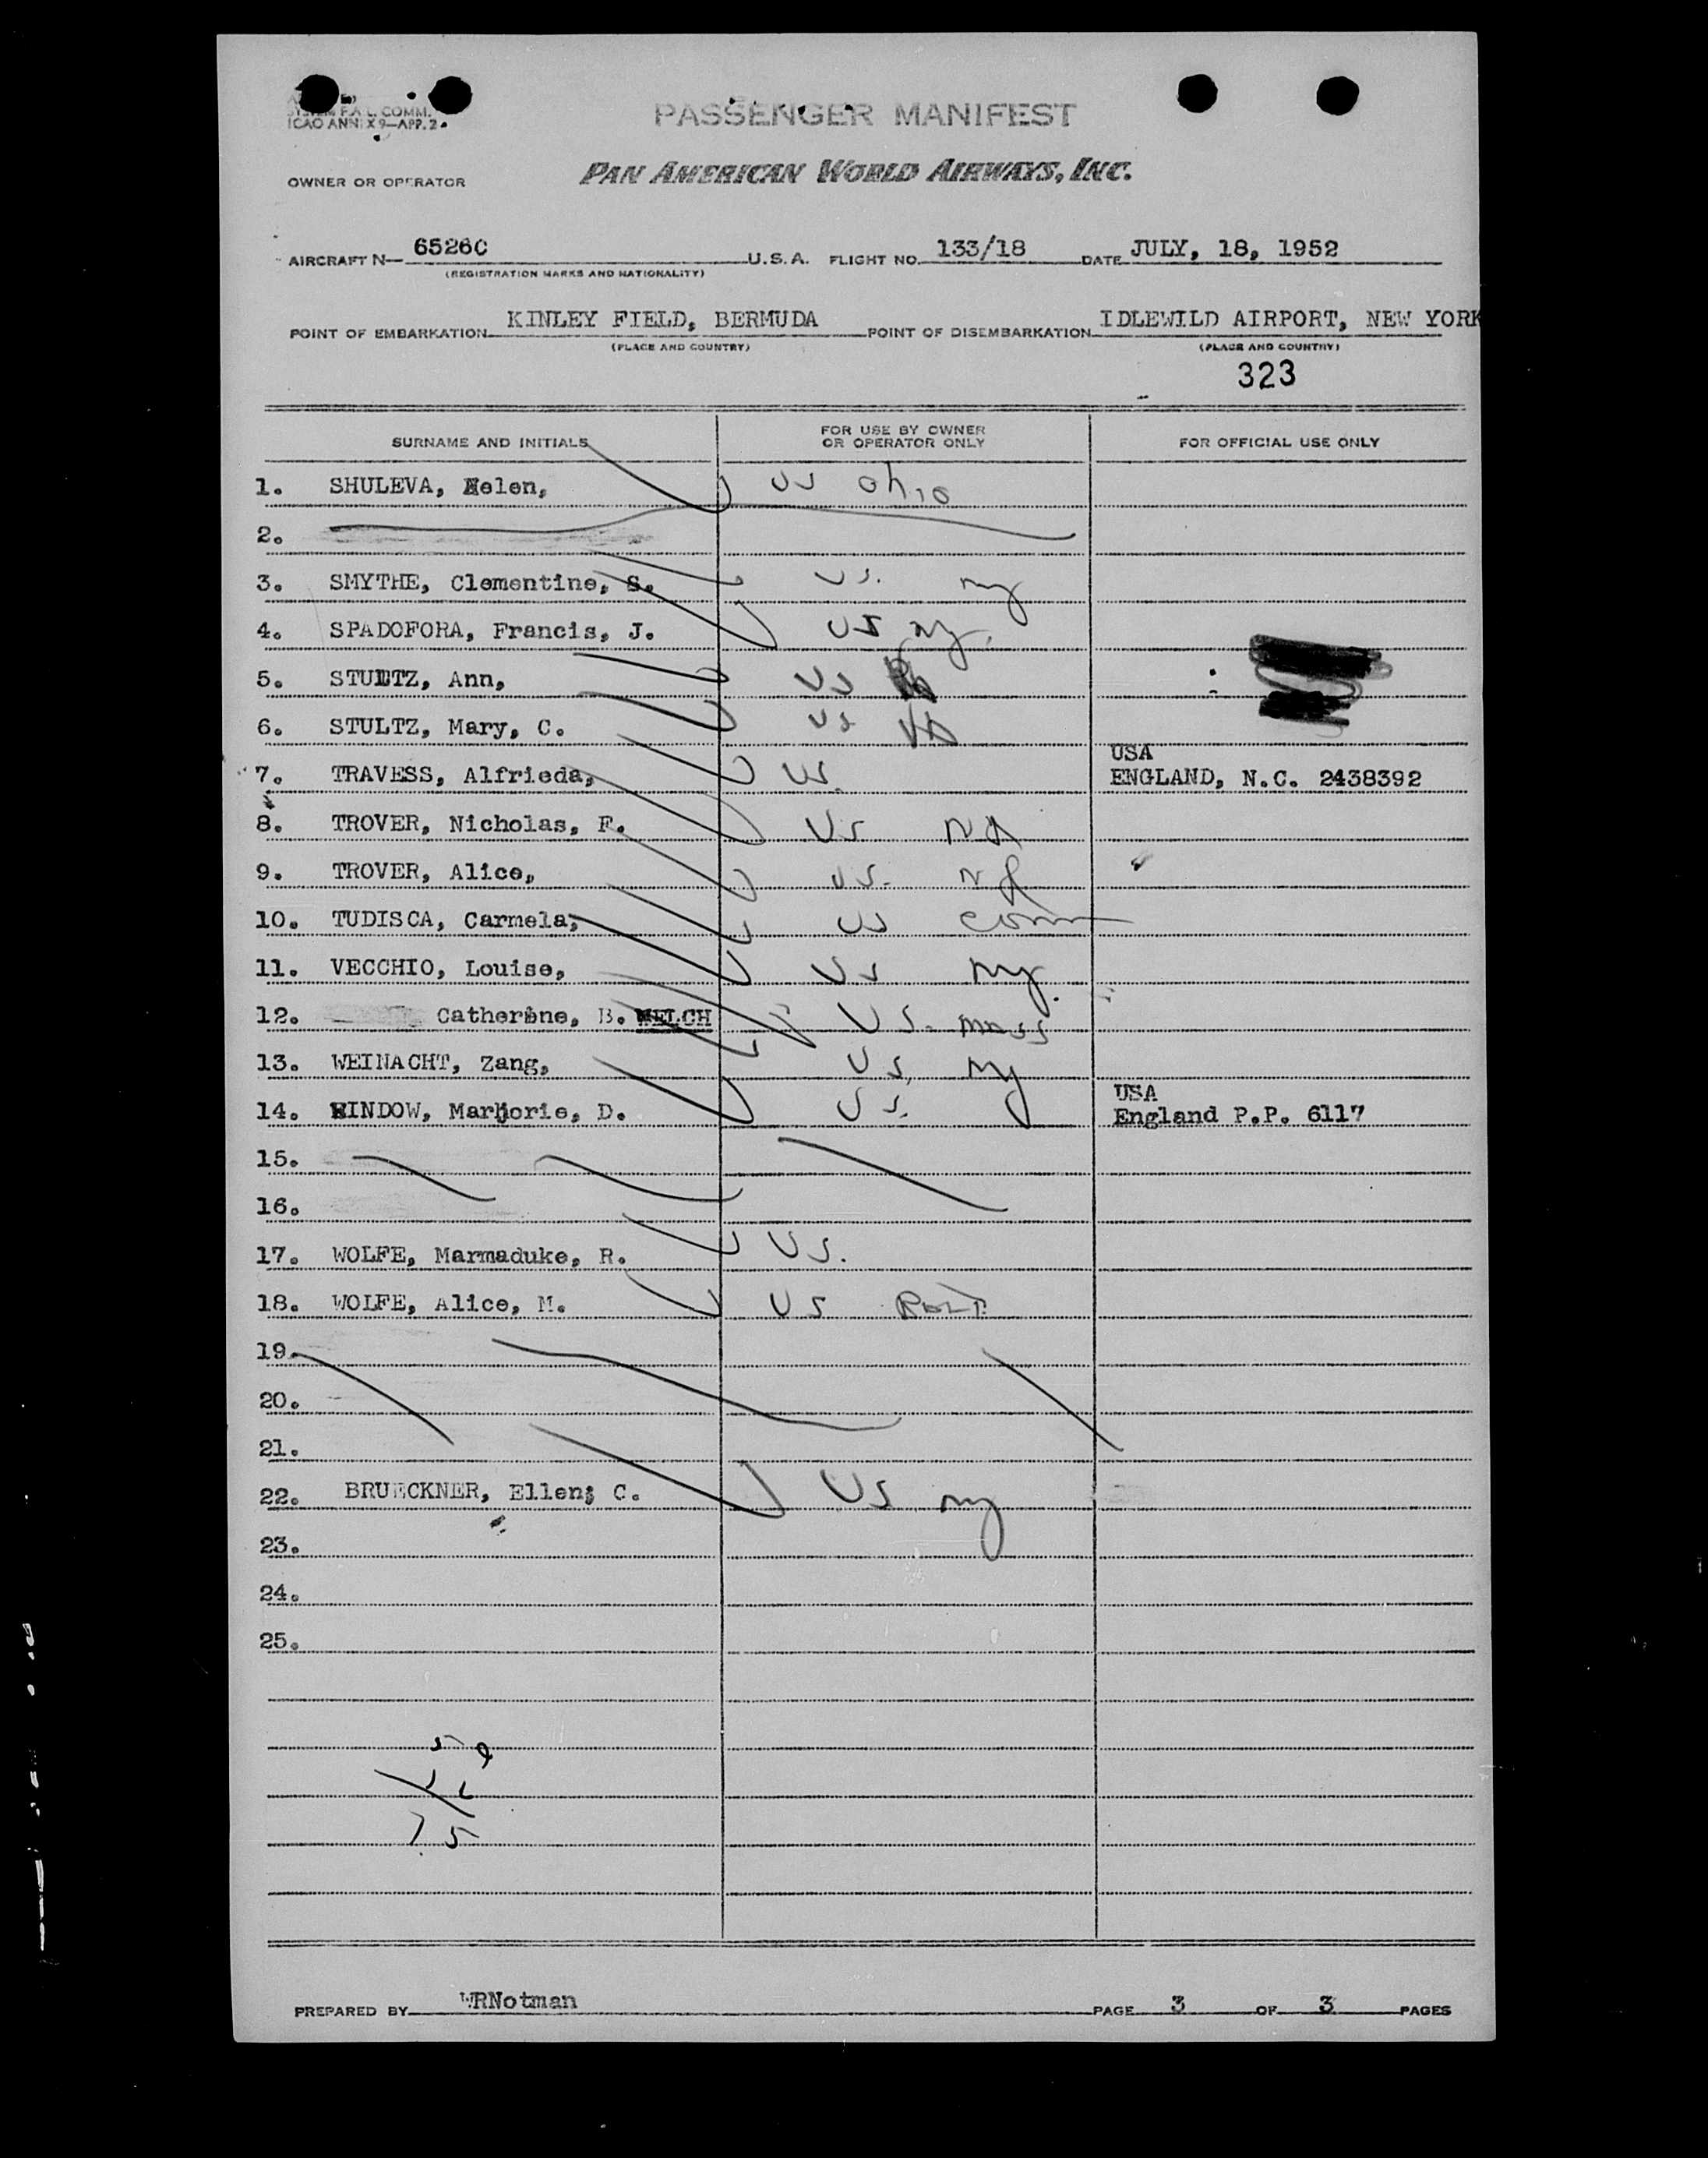 SYSTEM F.A.L. COMM.
ICAO ANNEX 9—APP. 2
PASSENGER MANIFEST
OWNER OR OPERATOR PAN AMERICAN WORLD AIRWAYS, INC.
AIRCRAFT N— 6526C U.S.A. FLIGHT NO. 133/18 DATE JULY, 18, 1952
(REGISTRATION MARKS AND NATIONALITY)
POINT OF EMBARKATION KINLEY FIELD, BERMUDA POINT OF DISEMBARKATION IDLEWILD AIRPORT, NEW YORK
(PLACE AND COUNTRY) (PLACE AND COUNTRY)
323
SURNAME AND INITIALS FOR USE BY OWNER OR OPERATOR ONLY FOR OFFICIAL USE ONLY
1. SHULEVA, Helen, US Ohio
2.
3. SMYTHE, Clementine, S. US. ny
4. SPADOFORA, Francis, J. US ny.
5. STULTZ, Ann, US
6. STULTZ, Mary, C. US VA
USA
7. TRAVESS, Alfrieda, US. ENGLAND, N.C. 2438392
8. TROVER, Nicholas, F. US
9. TROVER, Alice, US. NJ
10. TUDISCA, Carmela, US Conn
11. VECCHIO, Louise, US ny.
12. Catherine, B. WELCH US. mass
13. WEINACHT, Zang, US, ny
USA
14. WINDOW, Marjorie, D. US. England P.P. 6117
15.
16.
17. WOLFE, Marmaduke, R. US.
18. WOLFE, Alice, M. US
19.
20.
21.
22. BRUECKNER, Ellen; C. US ny
23.
24.
25.
75
PREPARED BY WRNotman PAGE 3 OF 3 PAGES